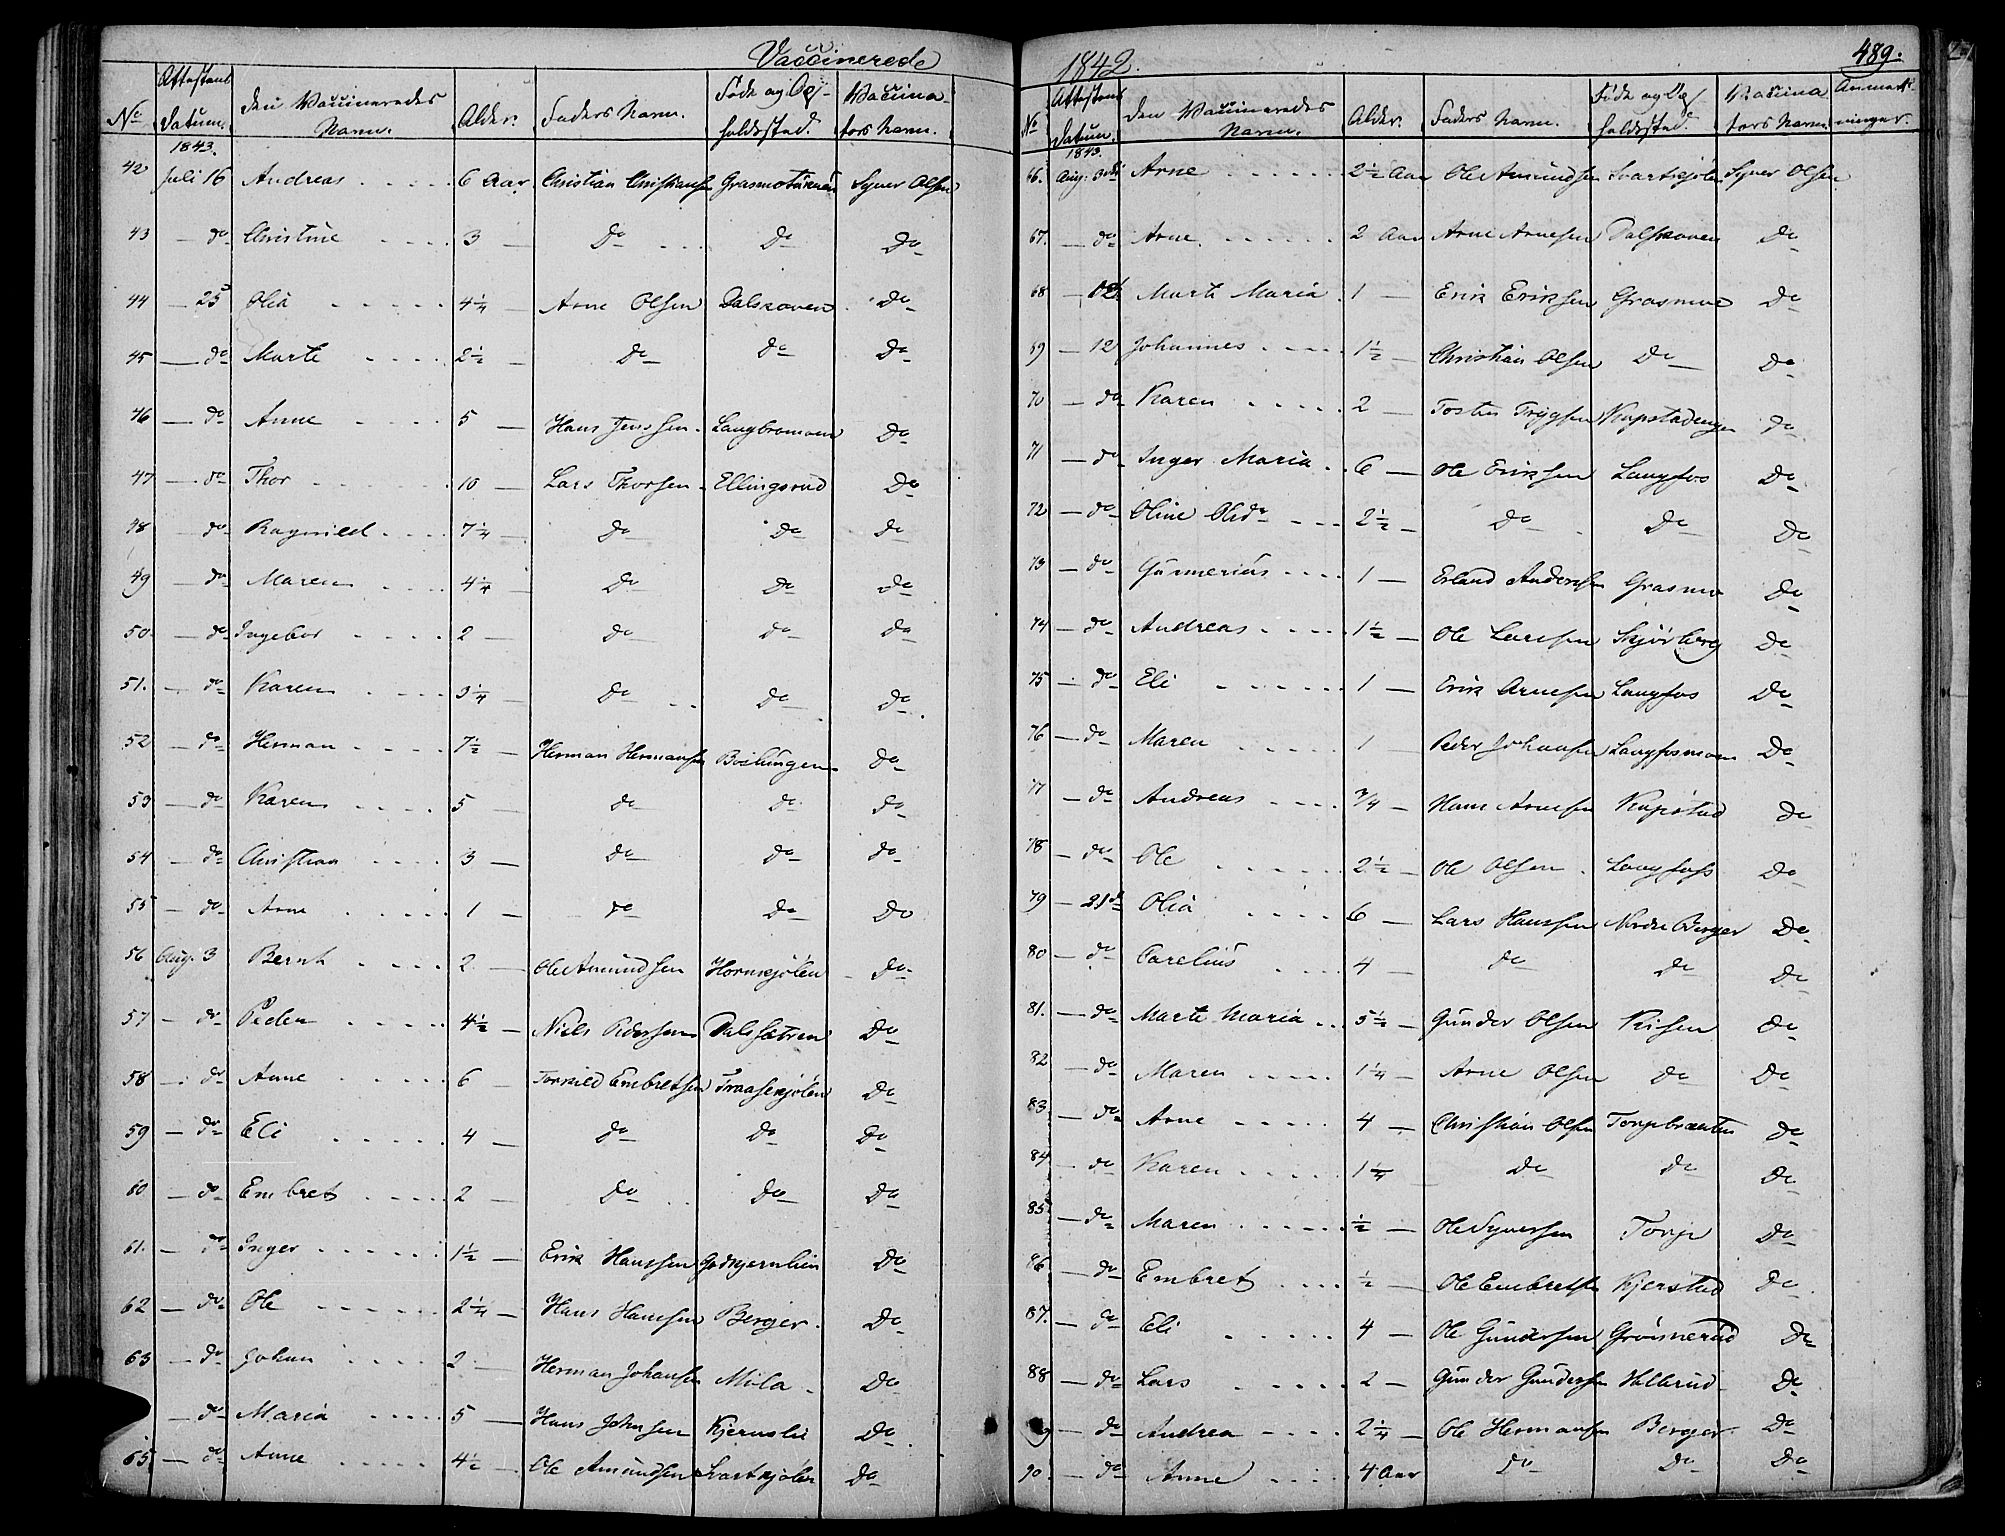 Vaccinerede
No Attestens Datum. den Vaccineredes Navn. Alder. Faders Navn. Føde og Op- holdssted. Vaccina- tors Navn.
1843.
42 Juli 16 Andreas 6 Aar Christian Christiansen Syver Olsen
43 — do Christine 3 — Do Do Do
44 — 25 Olia 4 1/4 Arne Olsen Dalskoven Do
45 — do Marte 2 1/2 — Do Do Do
46 — do Anne 5 — Hans Jensen Langbromoen Do
47 — do Thor 10 — Lars Thorsen Ellingsrud Do
48 — do Ragnild 7 1/4 — Do Do Do
49 — do Maren 4 1/4 — Do Do Do
50. — do Ingebor 2 — Do Do Do
51. — do Karen 3 1/4 — Do Do Do
52 — do Herman 7 1/2 — Herman Hermansen Do
53 — do Karen 5 — do do Do
54 — do Christian 3 — do do do
55 — do Arne 1 — do Do Do
56 Aug. 3 Bernt 2 — Ole Amundsen Hornkjølen Do
57 — do Peder 4 1/2 — Niels Pedersen Dalssætren Do
58 — do Anne 6 — Torkild Embretsen Fraasekjølen Do
59 — do Eli 4 — Do Do Do
60 — do Embret 2 — Do Do Do
61. — do Inger 1 1/2 — Erik Hanssen Godkjernlien Do
62 — do Ole 2 1/4 — Hans Hansen Berger. Do
63 — do Johan 2 — Herman Johansen Mila Do
— do Maria 5 — Hans Johnsen Kjernslie Do
65 — do Anne 4 1/2 — Ole Amundsen Svartkjølen Do
1842. 489.
No Attestens Datum. den Vaccineredes Navn. Alder. Faders Navn. Føde og Op- holdssted. Vaccina- tors Navn. Anmærk- ninger.
1843.
66. Aug. 3die Arne 2 1/2 Aar Ole Amundsen Svartkjølen Syver Olsen
67. — do Arne 2 Aar Arne Arnesen Dalskoven Do
68 — Marte Maria 1 — Erik Eriksen Grasmoe Do
69 — 12 Johannes 1 1/2 — Christian Olsen Do — Do
70 — do Karen 2 — Tosten Trygsen Kopstadengen do
71 — do Inger Maria 6 — Ole Eriksen Langfos Do
72 — do Oline 2 1/2 — Do Do Do
73 — do Gunnerius 1 — Erland Andersen Grasmo Do
74 — do Andreas 1 1/2 — Ole Larssen Skjørberg Do
75 — do Eli 1 — Erik Arnesen Langfos Do
76 — do Maren 1 — Peder Johansen Langfosmoen Do
77 — do Andreas 3/4 — Hans Arnesen Kopstad do
78 — do Ole 2 1/2 — Ole Olsen Langfoss Do
79 — 21de Olia 6 — Lars Hanssen Nordre Berger Do
80 — do Carelius 4 — do do Do
81. — do Marte Maria 5 1/2 — Gunder Olsen Risen Do
82 — do Maren 1 1/4 — Arne Olsen do Do
83. — do Arne 4 — Christian Olsen Torpbraaten do
84 — do Karen 1 1/4 Do do Do
85. — do Maren 1/2 — Ole Syversen Torp Do
86 — do Embret 1/2 — Ole Embretsen Kjerstad Do
87. — do Eli 4 — Ole Gundersen Grønnerud Do
88 — do Lars 2 — Gunder Gundersen Do
— do Andrea 2 1/4 — Ole Hermansen Berger Do
90. — do Anne 4 Aar Do Do Do